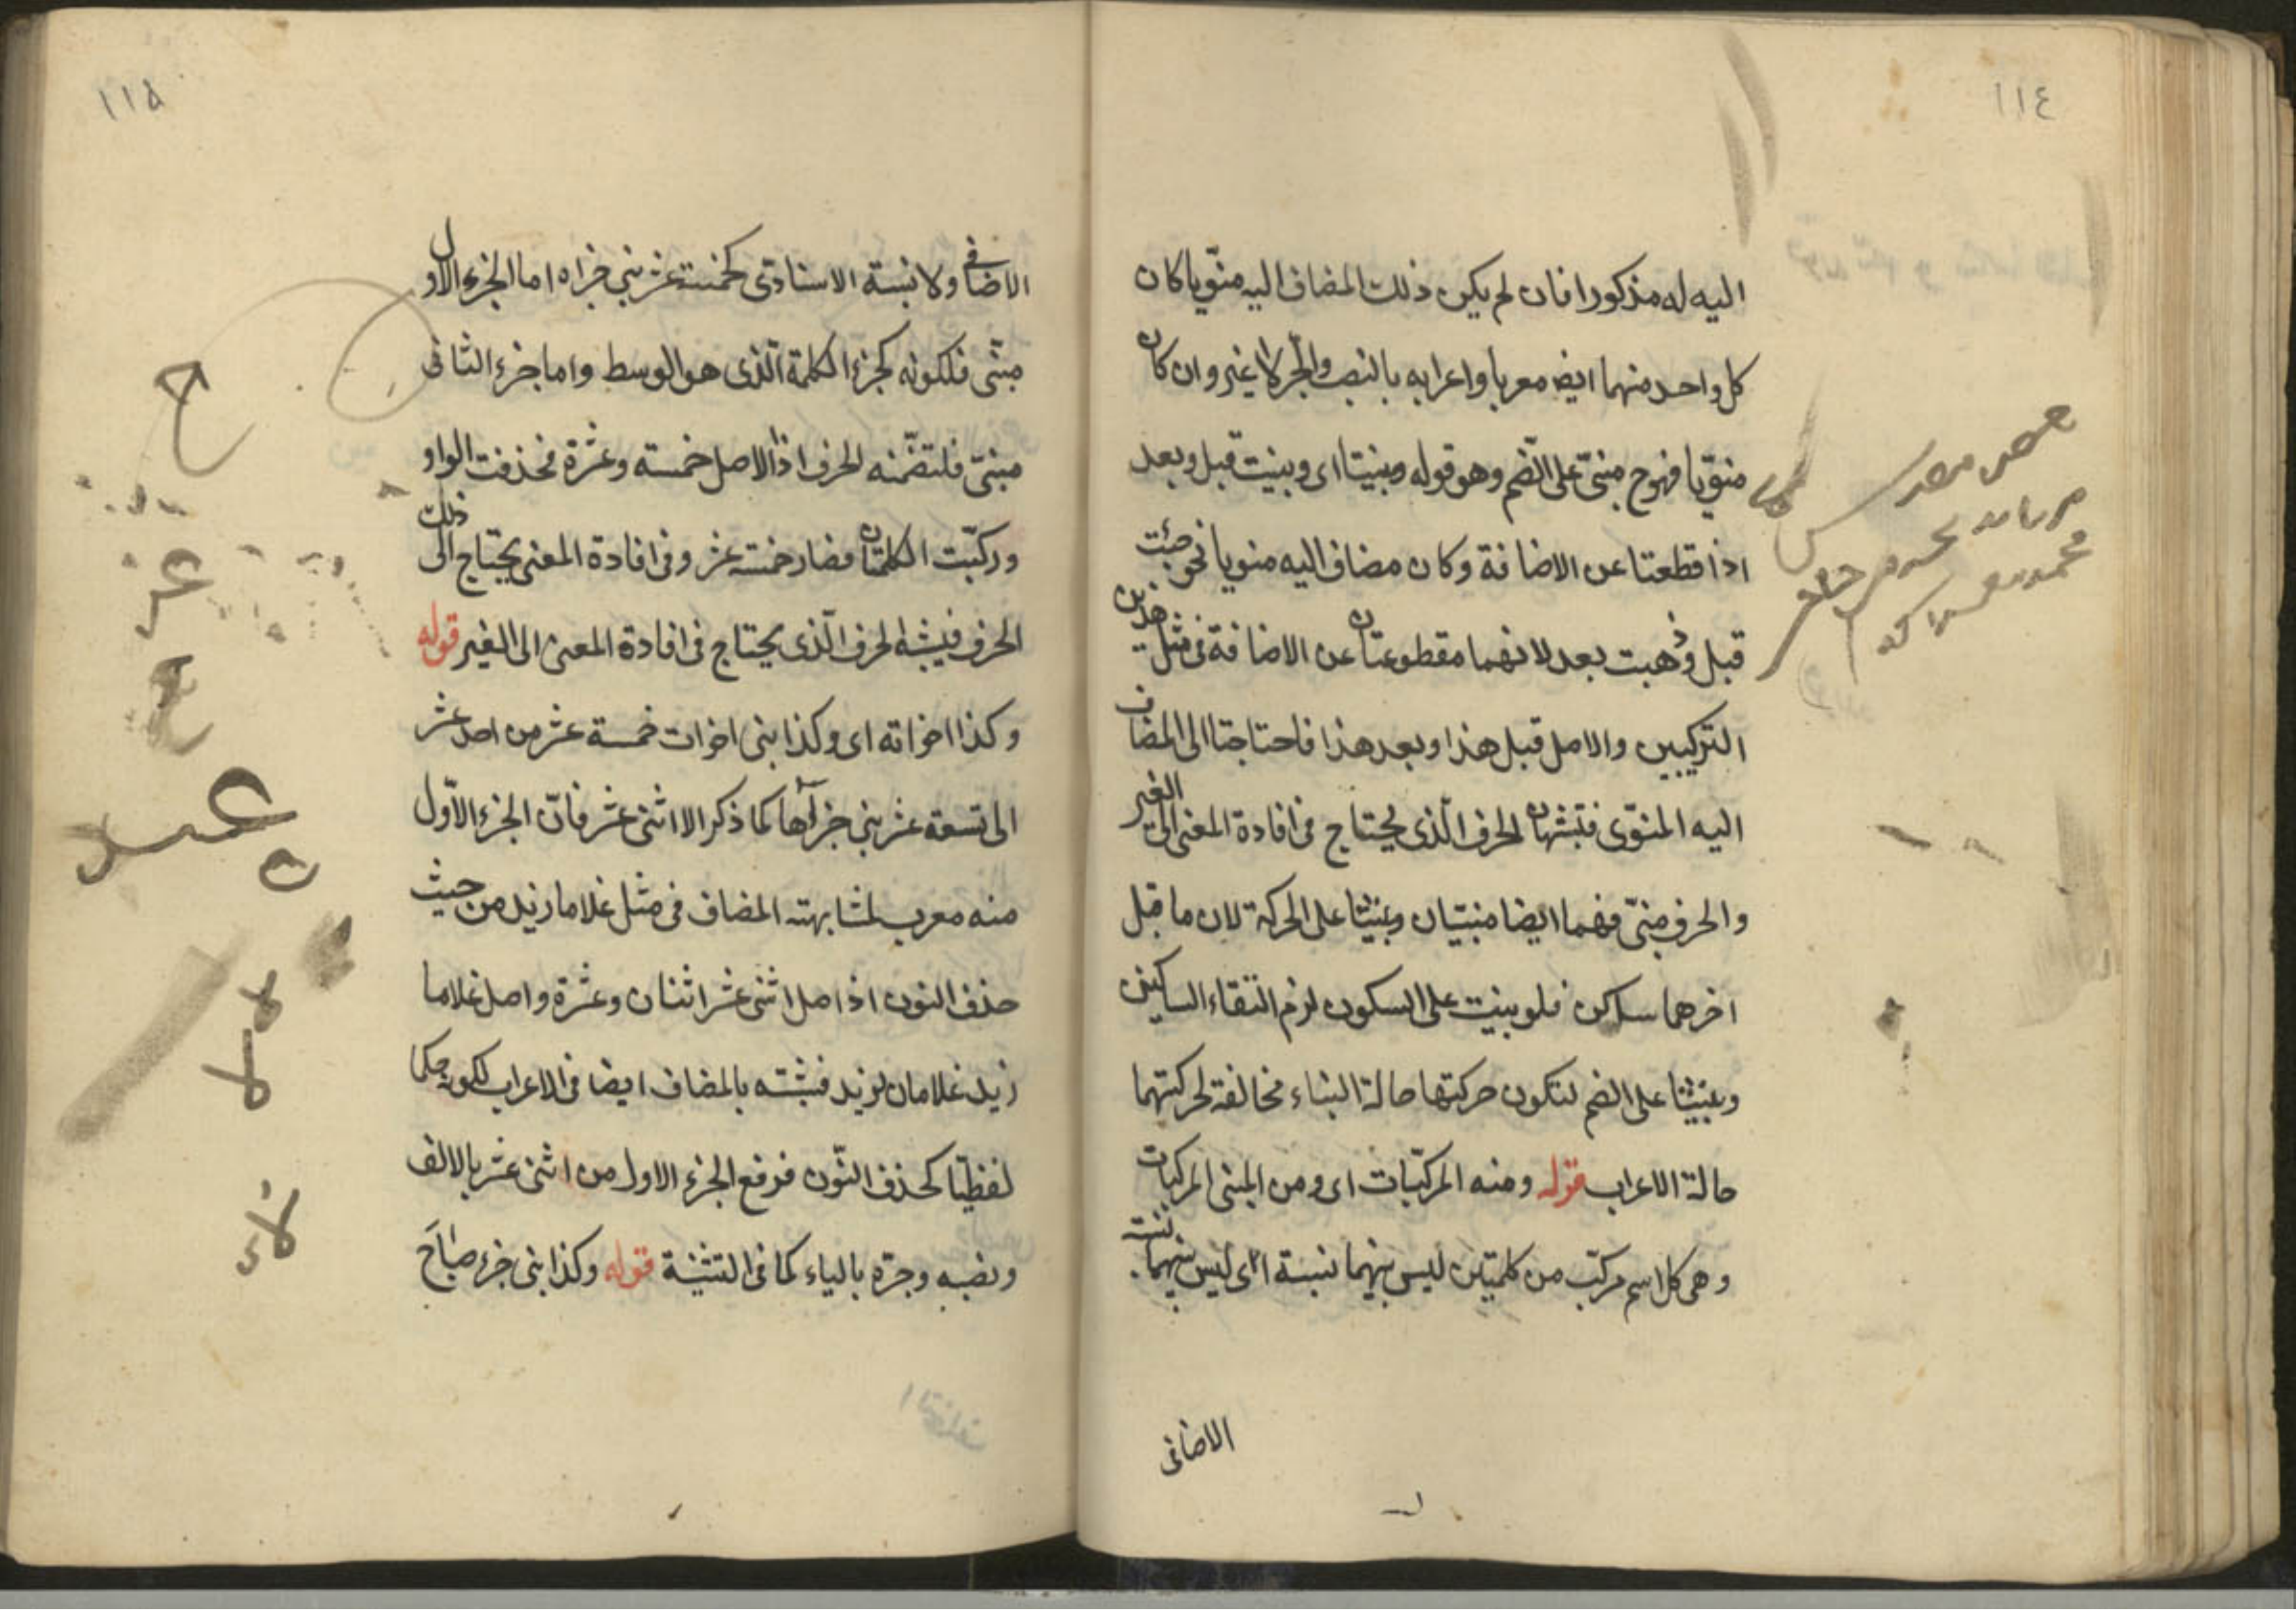 ١١٤
اليه له مذكورا فان لم يكن ذلك المضاف اليه منوّيا كان
كل واحد منهما ايض معربا واعرابه بالنصب والجّر لا غير وان كان
منوّيا فهوح مبنىّ على الضّم وهو قوله وبنيتا اى وبنيت قبل وبعد
اذا قطعتا عن الاضافة وكان مضاف اليه منويا نحو جئت
قبل وذهبت بعد لانهما مقطوعتان عن الاضافة فى مثل هذين
التركيبين والاصل قبل هذا وبعد هذا فاحتاجتا الى المضاف
اليه المنوّى فتشبهان الحرف الّذى يحتاج فى افادة المعنى الى الغير
والحرف مبنىّ فهما ايضا مبنيّان وبنيتا على الحركة لان ما قبل
اخرهما ساكن فلو بنيت على السكون لزم التقاء الساكنين
وبنيتا على الضم لتكون حركتها حالة البناء مخالفة لحركتهما
حالة الاعراب قوله ومنه المركبّات اى ومن المبنى المركبات
وهى كل اسم مركّب من كلمتين ليس بينهما نسبة اى ليس بينهما نسبت
الاضافى
١١۵
الاضافى ولا نسبة الاسنادى كخمسة عشر بنى جزاه اما الجزء الاول
مبنّى فلكونه كجزء الكلمة الّذى هو الوسط واما جزء الثانى
مبنىّ فلتضمّنه الحرف اذ الاصل خمسة وعشرة فحذفت الواو
وركبّت الكلمتان فصار خمسة عشر وفى افادة المعنى يحتاج الى ذلك
الحرف فيشبه الحرف الّذى يحتاج فى افادة المعنى الى الغير قوله
وكذا اخواته اى وكذا بنى اخوات خمسة عشر من احد عشر
الى تسعة عشر بنى جزآها كما ذكر الا اثنى عشر فانّ الجزء الاوّل
منه معرب لمشابهته المضاف فى مثل غلاما زيد من حيث
حذف النون اذ اصل اثنى عشر اثنان وعشرة واصل غلاما
زيد غلامان لزيد فشبّته بالمضاف ايضا فى الاعراب لكونه حكما
لفظيّا كحذف النّون فرفع الجزء الاول من اثنى عشر بالالف
ونصبه وجرّه بالياء كما فى التثنية قوله وكذا بنى جزء صباحَ